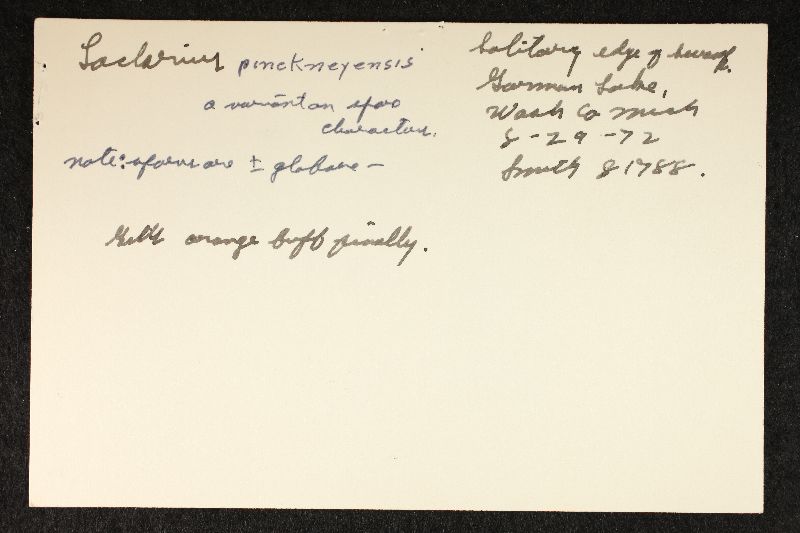 Lactarius pinckneyensis
a variant on spore
character.
note: spores are ± globose –
Gills orange buff finally.
Solitary edge of swamp.
Gorman Lake,
Wash Co Mich
8-29-72
Smith 81788.